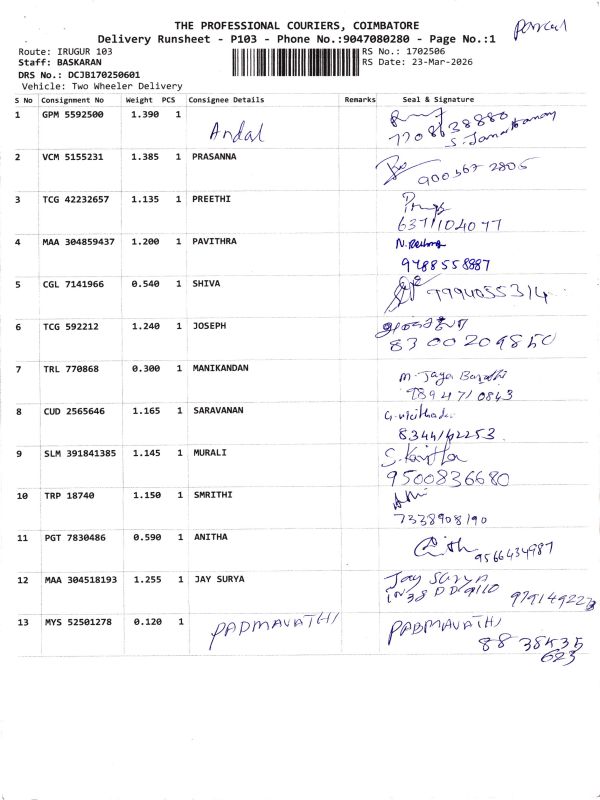 THE PROFESSIONAL COURIERS, COIMBATORE
Parcel
Delivery Runsheet - P103 - Phone No.:9047080280 - Page No.:1
Route: IRUGUR 103
RS No.: 1702506
Staff: BASKARAN
RS Date: 23-Mar-2026
DRS No.: DCJB170250601
Vehicle: Two Wheeler Delivery
S No Consignment No Weight PCS Consignee Details Remarks Seal & Signature
1 GPM 5592500 1.390 1 Andal
7708638880
2 VCM 5155231 1.385 1 PRASANNA
900567 2805
3 TCG 42232657 1.135 1 PREETHI
6371104077
4 MAA 304859437 1.200 1 PAVITHRA
9788558887
5 CGL 7141966 0.540 1 SHIVA 9994055314
6 TCG 592212 1.240 1 JOSEPH
8300209850
7 TRL 770868 0.300 1 MANIKANDAN
M. Jaya
7894710843
8 CUD 2565646 1.165 1 SARAVANAN
8344142253
9 SLM 391841385 1.145 1 MURALI
S. Kavitha
9500836680
10 TRP 18740 1.150 1 SMRITHI
7338908190
11 PGT 7830486 0.590 1 ANITHA
9566434987
12 MAA 304518193 1.255 1 JAY SURYA Jay Surya
TN38 DD9110 9791492223
13 MYS 52501278 0.120 1 PADMAVATHI PADMAVATHI
88 38535
623